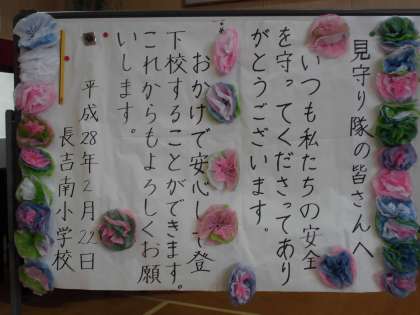 見守り隊の皆さんへ
いつも私たちの安全
を守ってくださってあり
がとうございます。
おかげで安心して登
下校することができます。
これからもよろしくお願
いします。
平成28年2月22日
長吉南小学校